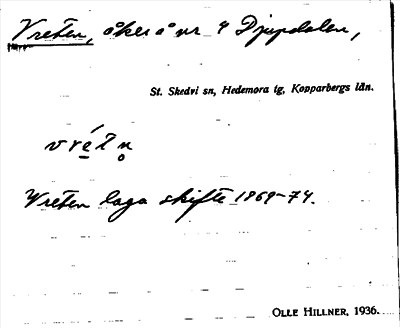 Vreten, åker å nr 4 Djupdalen,
St. Skedvi sn, Hedemora tg, Kopparbergs län.
vrétn̥
Vreten laga skifte 1869-74.
OLLE HILLNER, 1936.